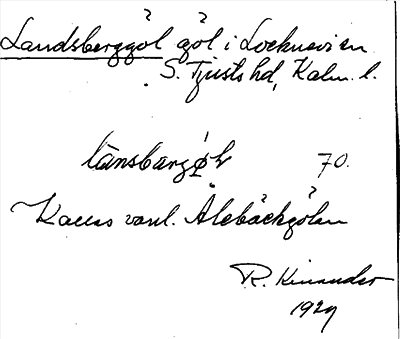 Landsberggöl göl i Locknevi sn
S. Tjusts hd, Kalm. l.
70.
Kallas vanl. Ålebäckgölen
R. Kinander
1929